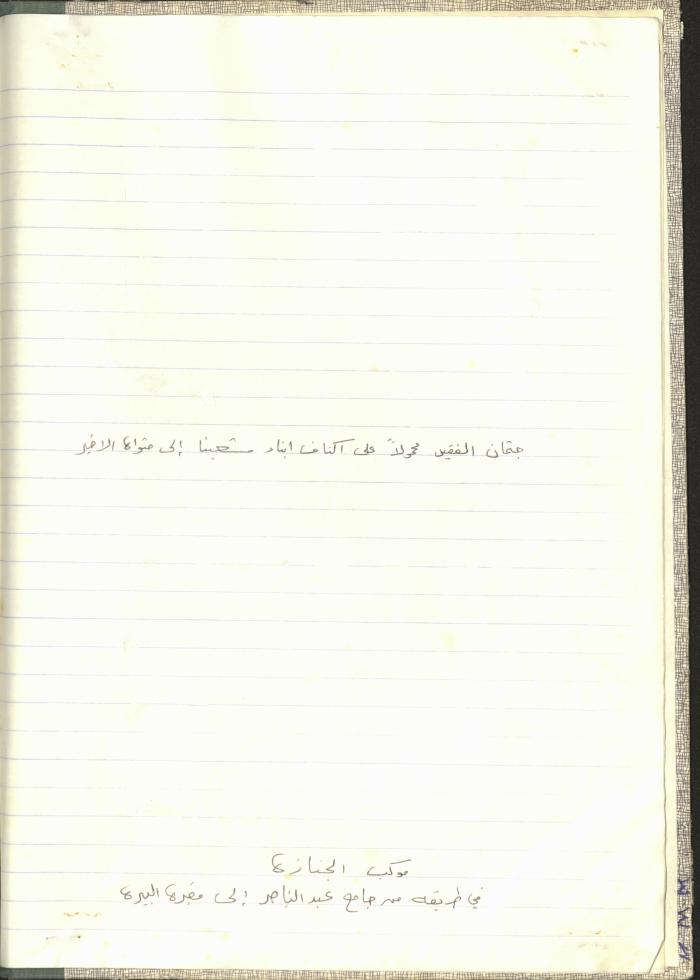 جثمان الفقيد محمولاً على اكتاف ابناء شعبنا إلى مثواه الاخير
موكب الجنازة
في طريقه من جامع عبد الناصر إلى مقبرة البيرة